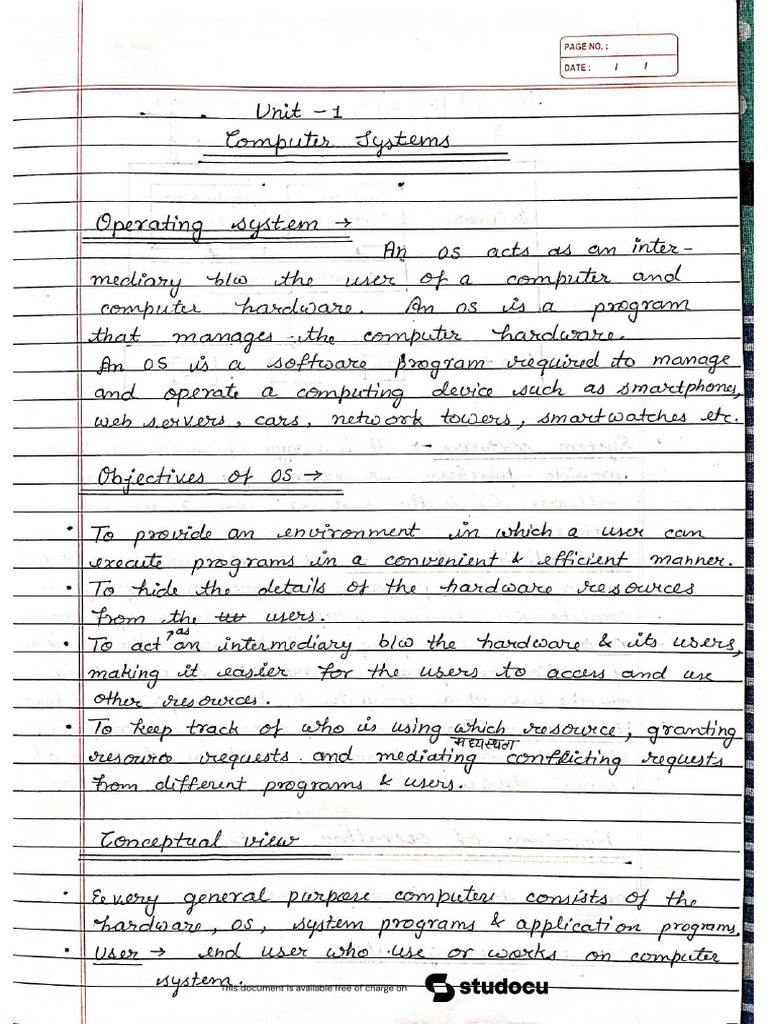 PAGE NO. :
DATE : / /
Unit - 1
Computer Systems
Operating system →
An OS acts as an inter-
mediary b/w the user of a computer and
computer hardware. An OS is a program
that manages the computer hardware.
An OS is a software program required to manage
and operate a computing device such as smartphones,
web servers, cars, network towers, smartwatches etc.
Objectives of OS →
• To provide an environment in which a user can
execute programs in a convenient & efficient manner.
• To hide the details of the hardware resources
from the users.
• To act as an intermediary b/w the hardware & its users,
making it easier for the users to access and use
other resources.
• To keep track of who is using which resource, granting
मध्यस्थता
resource requests and mediating conflicting requests
from different programs & users.
Conceptual view
• Every general purpose computer consists of the
hardware, OS, system programs & application programs.
• User → end user who use or works on computer
system.
This document is available free of charge on studocu